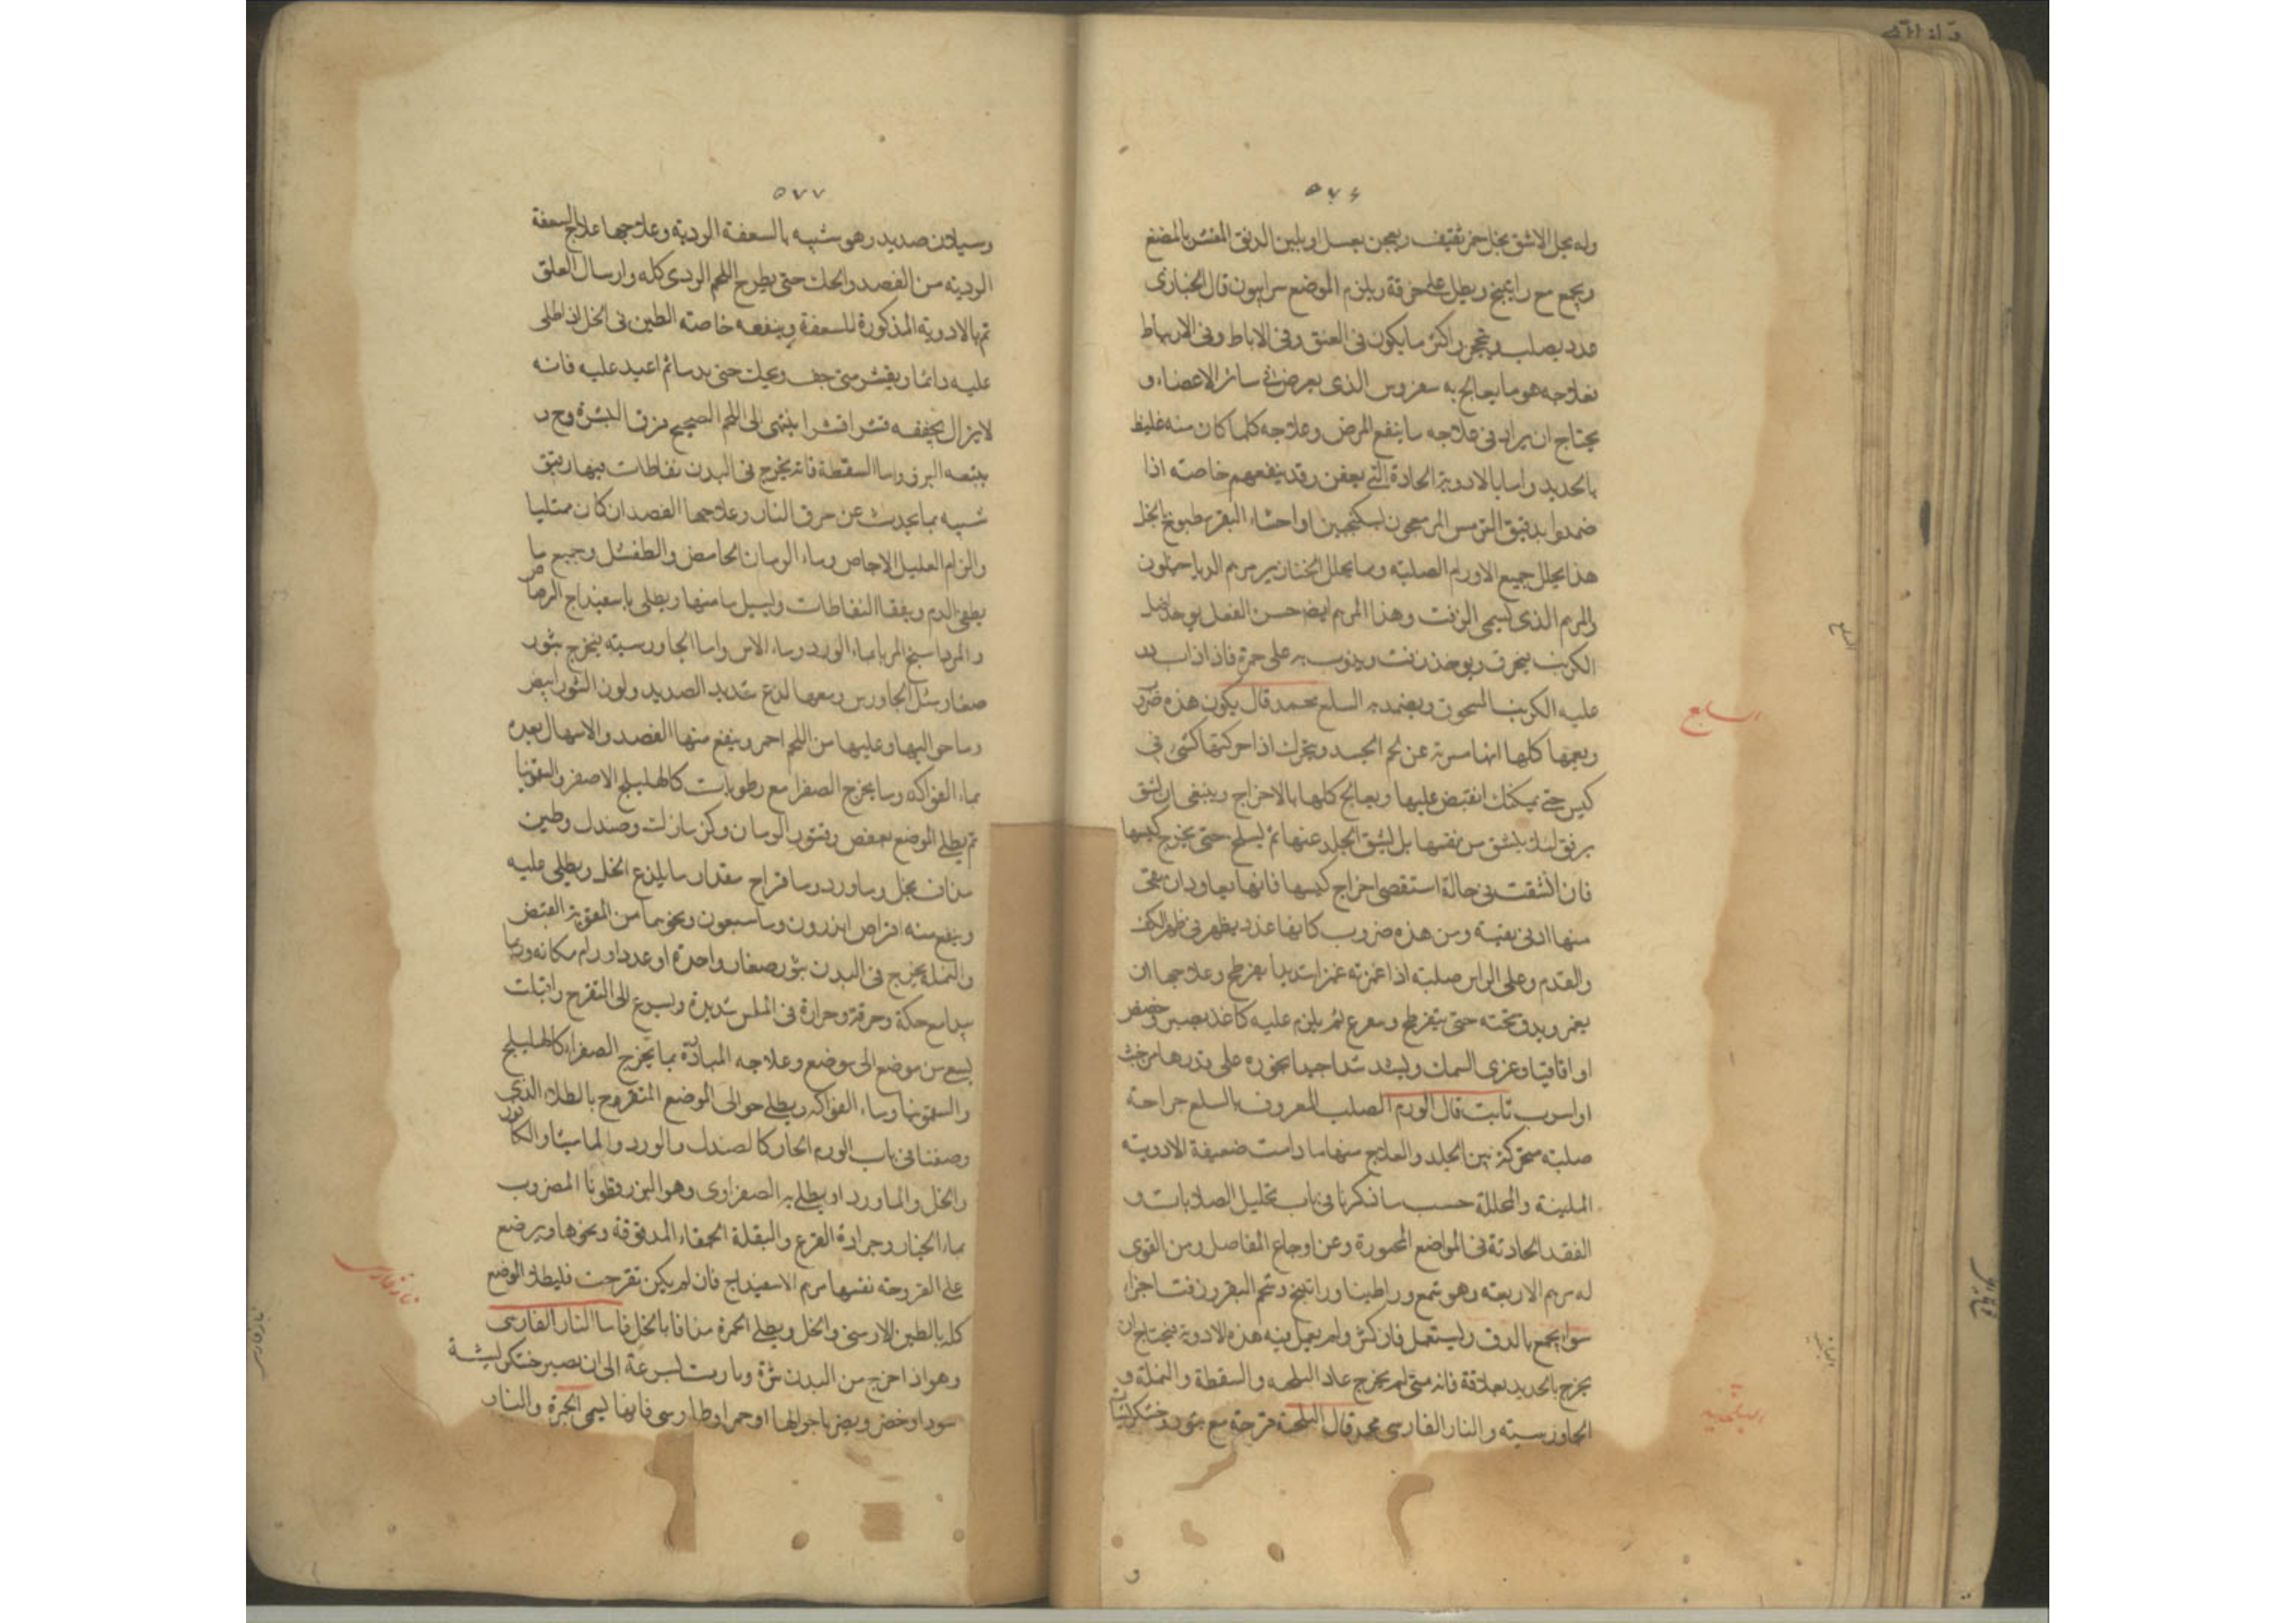 ٥٧٦
وله يحل الاشق بخل خمر ثقيف ويعجن بعسل او بلبن الدقق المقشر بالمضغ
ويجمع مع راتينج ويطلى على خرقة ويلزم الموضع سرابيون قال الخنازى
غدد يصلب ويتحجر واكثر ما يكون فى العنق وفى الاباط وفى الاربياط
فعلاجه هو ما يعالج به سقروس الذى يعرض فى سائر الاعضاء و
يحتاج ان يزاد فى علاجه ما ينفع المرض وعلاجه كلما كان منه غليظ
بالحديد واما بالادوية الحادة التى يعفن وقد ينفعهم خاصته اذا
ضمدوا بدقيق الترمس المر معجون بسكنجبين او احشاء البقر مطبوخ بالخل
هذا يحلل جميع الاورام الصلبة ومما يحلل الخنازير مرهم الدياخيلون
والمرهم الذى يسمى الزفت وهذا المرهم ايضا حسن الفعل يوخذ
الكرنب فيحرق ويوخذ زفت ويذوب به على جمرة فاذا ذاب يذر
عليه الكرنب المسحوق ويضمد به السلع محمد قال يكون هذه ضروب
ويعمها كلها انها متبرية عن لحم الجسد ويتحرك اذا حركتها كشىء فى
كيس حتى يمكنك القبض عليها ويعالج كلها بالاخراج وينبغى ان يشق
برفق لئلا ينشق من نفسها بل يشق الجلد عنها ثم يسلخ حتى يخرج كيسها
فان انشقت فى حالة استقصى اخراج كيسها فانها يعاود ان بقى
منها ادنى بقية ومن هذه ضروب كانها غدد يظهر فى ظهر الكف
والقدم وعلى الراس صلبة اذا غمزته غمزا شديدا يفرطح وعلاجها ان
يغمز ويدق تحته حتى يتفرطح وسعرع ثم يلزم عليه كاغذ بصبر وحضض
او اقاقيا وغرى السمك ويشد شدا جيدا بخوره على قدرها من خشب
او اسرب ثابت قال الورم الصلب المعروف بالسلع جراحة
صلبة متحركة بين الجلد والعلاج منها ما دامت ضعيفة الادوية
الملينة والمحللة حسب ما ذكرنا فى باب تحليل الصلابات و
العقد الحادثة فى المواضع المحمورة وعن اوجاع المفاصل ومن القوى
له مرهم الاربعة وهو شمع وراطينا وراتينج وشحم البقر وزفت اجزاء
سوا يجمع بالدق ويستعمل فان كثر ولم يعمل فيه هذه الادوية فيحتاج ان
يخرج بالحديد بعلاقة فانه متى لم يخرج عاد البلحه والسقطة والنملة و
الجاورسيته والنار الفارسى محمد قال البلحة قرحة مع بثور وخشكريشات
السلع
٥٧٧
وسيلان صديد وهو شبيه بالسعفة الردية وعلاجها علاج السعفة
الردية من الفصد والحك حتى يطرح اللحم الردى كله وارسال العلق
ثم بالادوية المذكورة للسعفة وينفعه خاصته الطين فى الخل اذا طلى
عليه دائما ويقشر متى جف ويحك حتى يدما ثم اعيد عليه فانه
لا يزال يجففه قشرا قشرا ينتهى الى اللحم الصحيح فرق البشرة وح
يتبعه البرو واما السقطة فانه يخرج فى البدن نفاطات فيها رقيق
شبيه بما يحدث عن حرق النار وعلاجها الفصد ان كان ممتليا
والزام العليل الاجاص وماء الرمان الحامض والطفشل وجميع ما
يطفى الدم ويفقا النفاطات وليسيل ما منها ويطلى باسفيداج الرصاص
والمرداسنج المربا بماء الورد وماء الاس واما الجاورسيته فيخرج بثور
صغار مثل الجاورس ومعها لذع شديد الصديد ولون البثور ابيض
وما حواليها وعليها من اللحم احمر وينفع منها الفصد والاسهال بعده
بماء الفواكه وما يخرج الصفرا مع رطوبات كالهليلج الاصفر والسقمونيا
ثم يطلى الموضع بعفص وقشور الرمان وكزمازك وصندل وطين
مداف بخل وماورد وما قراح مقدار ما يلذع الخل ويطلى عليه
وينفع منه اقراص اندرون وماسبعون ونحوهما من المقوية القبض
والنملة يخرج فى البدن بثور صغار واحدة او عدد اورام مكانه وربما
بدا مع حكة وحرقة وحرارة فى الملمس شديدة ويسرع الى التقرح وانبات
يسع من موضع الى موضع وعلاجه المبادرة بما يخرج الصفراء كالهليلج
والسقمونيا وماء الفواكه ويطلى حوالى الموضع المتقروح بالطلاء الذى
وصفنا فى باب الورم الحار كالصندل والورد والماميثا والكافور
والخل والماورد او يطلى به الصفراوى وهو البزرقطونا المضروب
بماء الخيار وجرادة القرع والبقلة الحمقاء المدقوقة ونحوها ويرضع
على القروحة نفسها مرهم الاسفيداج فان لم يكن تقرحت فليطلا الموضع
كله بالطين الارمنى والخل ويطلى الحمرة مدافا بالخل فاما النار الفارسى
وهو اذا اخرج من البدن بثرة وبادرت بسرعة الى ان تصير خشكريشة
سودا وخضر ويصير ما حولها احمر او طاوسى فانها ليسمى الجمرة والنار
نار فارسى